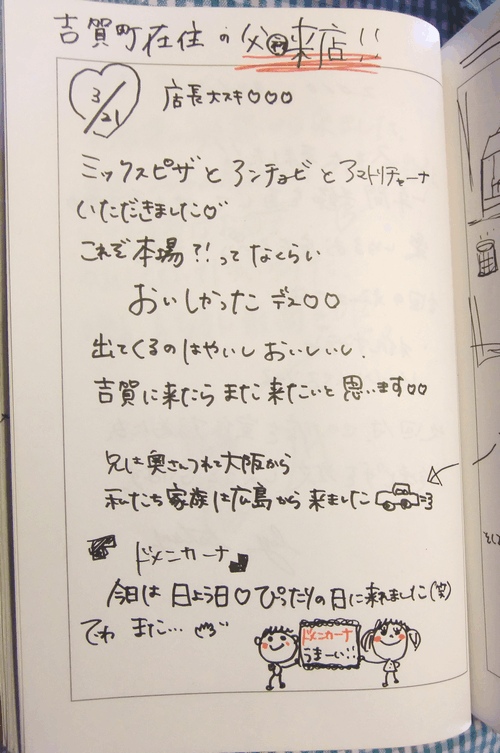 吉賀町在住の父来店!!
3/21
店長大スキ♡♡♡
ミックスピザとアンチョビとアマトリチャーナ
いただきました♡
これぞ本場?!ってなくらい
おいしかったデス♡♡
出てくるのはやいしおいしいし.
吉賀に来たらまた来たいと思います♡♡
兄は奥さんつれて大阪から
私たち家族は広島から来ました
ドメニカーナ
今日は日よう日♡ぴったりの日に来れました(笑)
でわまた…
ドメニカーナ
うまーい!!